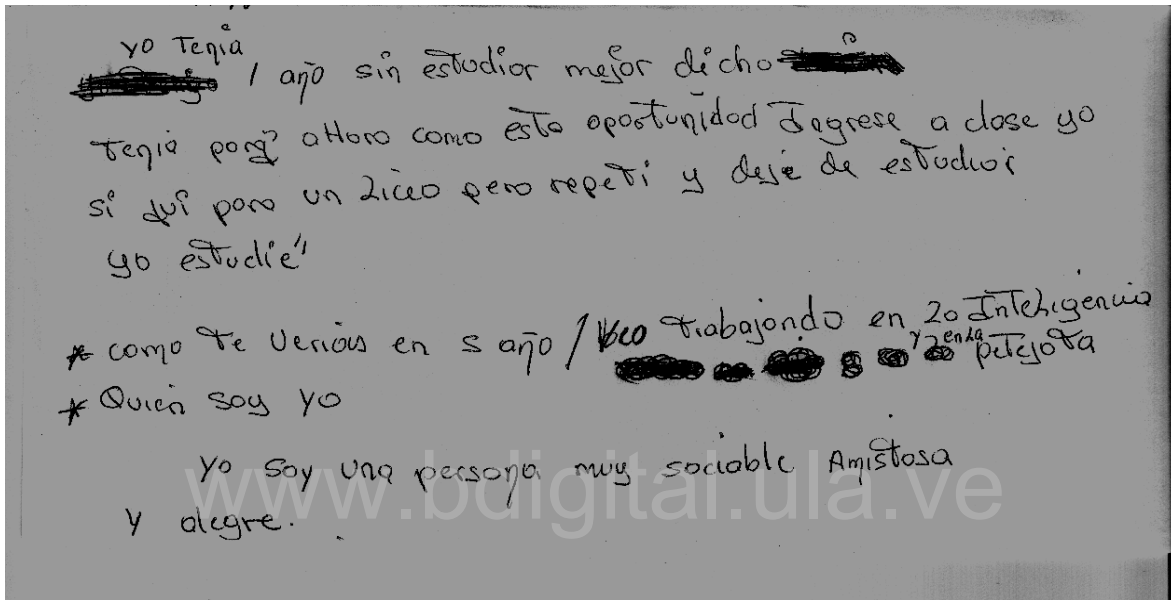 yo Tenia
1 año sin estudiar mejor dicho
Tenia porq' aHora como esta oportunidad Ingrese a clase yo
si fui para un Liceo pero repeti y dejé de estudiar
yo estudie"
* como te verias en 5 año / veo trabajando en la InteLigencia
y en La petejota
* Quien soy yo
yo soy una persona muy sociable Amistosa
y alegre.
www.bdigital.ula.ve